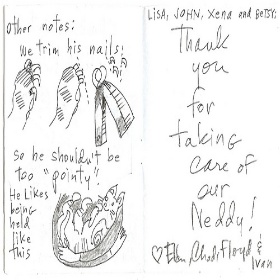 other notes:
we trim his nails:
so he shouldn't be
too "pointy"
He Likes
being
held
like
this
LISA, JOHN, Xena and BETSY:
Thank
you
for
taking
care of
our
Neddy!
Floyd &
Ivan